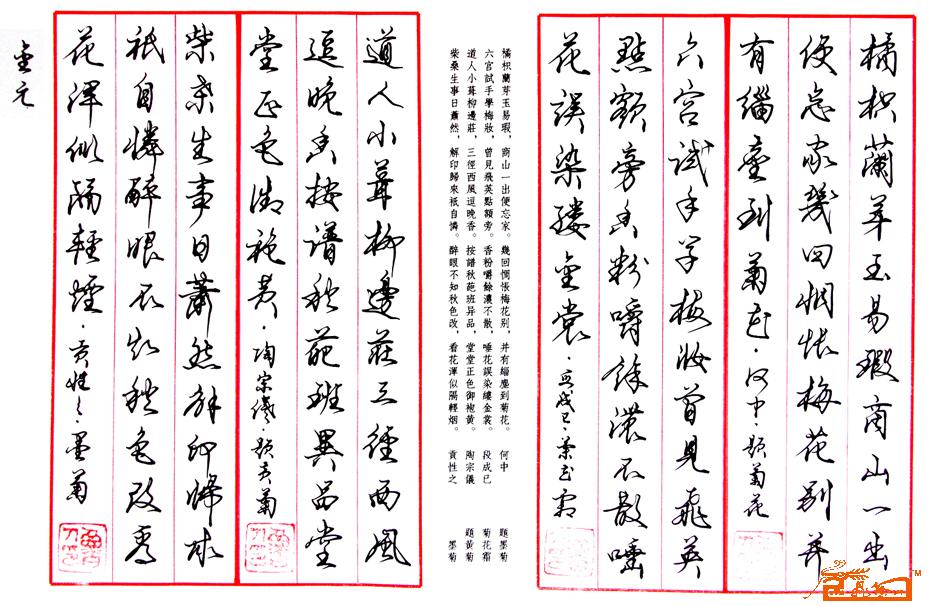 橘枳蘭芽玉易瑕商山一出
便忘家幾回惆悵梅花别并
有緇塵到菊花·何中·題菊花
六宫試手学梅妝曾見飛英
點額旁香粉嚼餘濃不散唾
花誤染縷金裳·段成己·菊花霜
橘枳蘭芽玉易瑕，商山一出便忘家。幾回惆悵梅花别，并有緇塵到菊花。 何中 題墨菊
六宫試手學梅妝，曾見飛英點額旁。香粉嚼餘濃不散，唾花誤染縷金裳。 段成己 菊花霜
道人小葺柳邊莊，三徑西風逗晚香。按譜秋葩班异品，堂堂正色御袍黄。 陶宗儀 題黄菊
柴桑生事日蕭然，解印歸來祇自憐。醉眼不知秋色改，看花渾似隔輕烟。 貢性之 墨菊
道人小葺柳邊莊三徑西風
逗晚香按譜秋葩班異品堂
堂正色御袍黄·陶宗儀·題黄菊
柴桑生事日蕭然解印歸来
祇自憐醉眼不知秋色改看
花渾似隔輕煙·貢性之·墨菊
金元